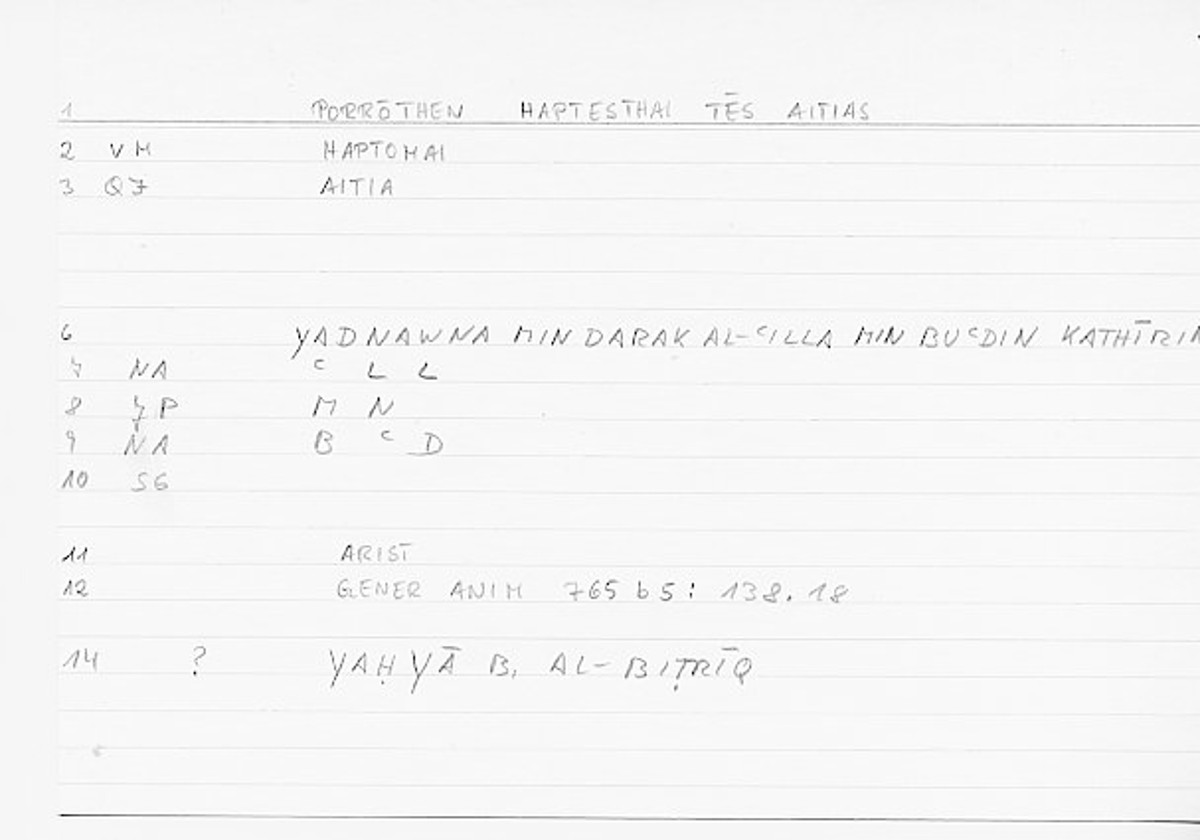 1 PORRŌTHEN HAPTESTHAI TĒS AITIAS
2 VM HAPTOMAI
3 Q7 AITIA
6 YADNAWNA MIN DARAK AL-ʿILLA MIN BUʿDIN
7 NA ʿ L L
8 7P M N
9 NA B ʿ D
10 SG
11 ARIST
12 GENER ANIM 765 b 5: 138.18
14 ? YAḤYĀ B. AL-BIṬRĪQ